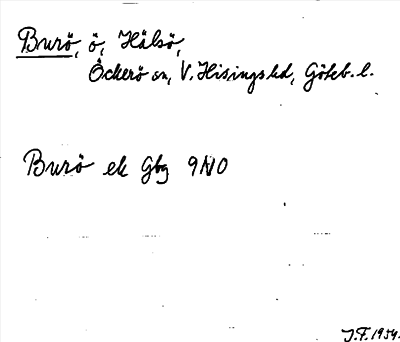 Burö, ö, Hälsö,
Öckerö sn, V. Hisings hd, Göteb. l.
Burö ek Gbg 9NO
J.F. 1954.